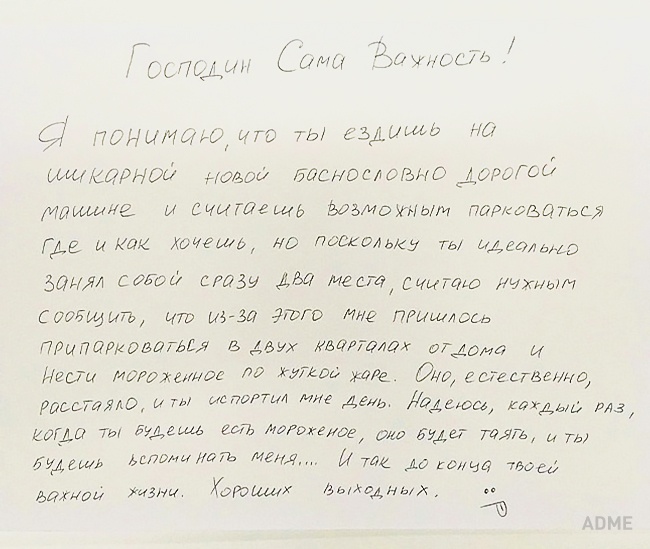 Господин Сама Важность!
Я понимаю, что ты ездишь на
шикарной новой баснословно дорогой
машине и считаешь возможным парковаться
где и как хочешь, но поскольку ты идеально
занял собой сразу два места, считаю нужным
сообщить, что из-за этого мне пришлось
припарковаться в двух кварталах от дома и
нести мороженное по жуткой жаре. Оно, естественно,
расстаяло, и ты испортил мне день. Надеюсь, каждый раз,
когда ты будешь есть мороженое, оно будет таять, и ты
будешь вспоминать меня.... И так до конца твоей
важной жизни. Хороших выходных. :P
ADME